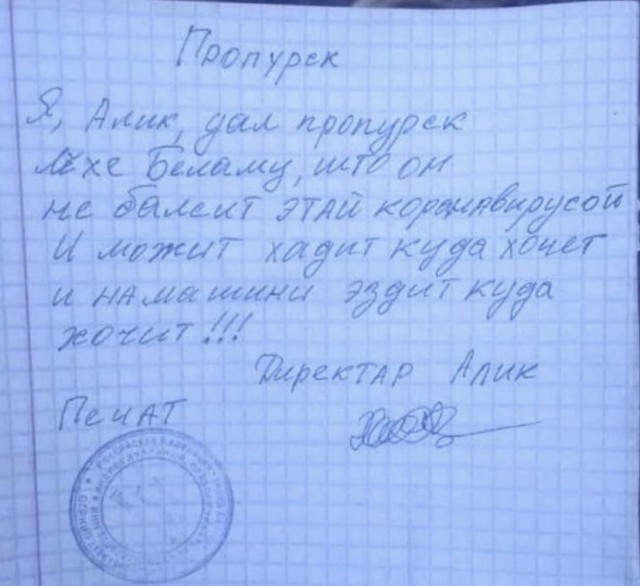 Пропурск
Я, Алик, дал пропурск
Лёхе Беламу, што он
не балеит этай коронавирусой
И можит хадит куда хочет
и на машини эздит куда
хочит!!!
Директар Алик
Печат